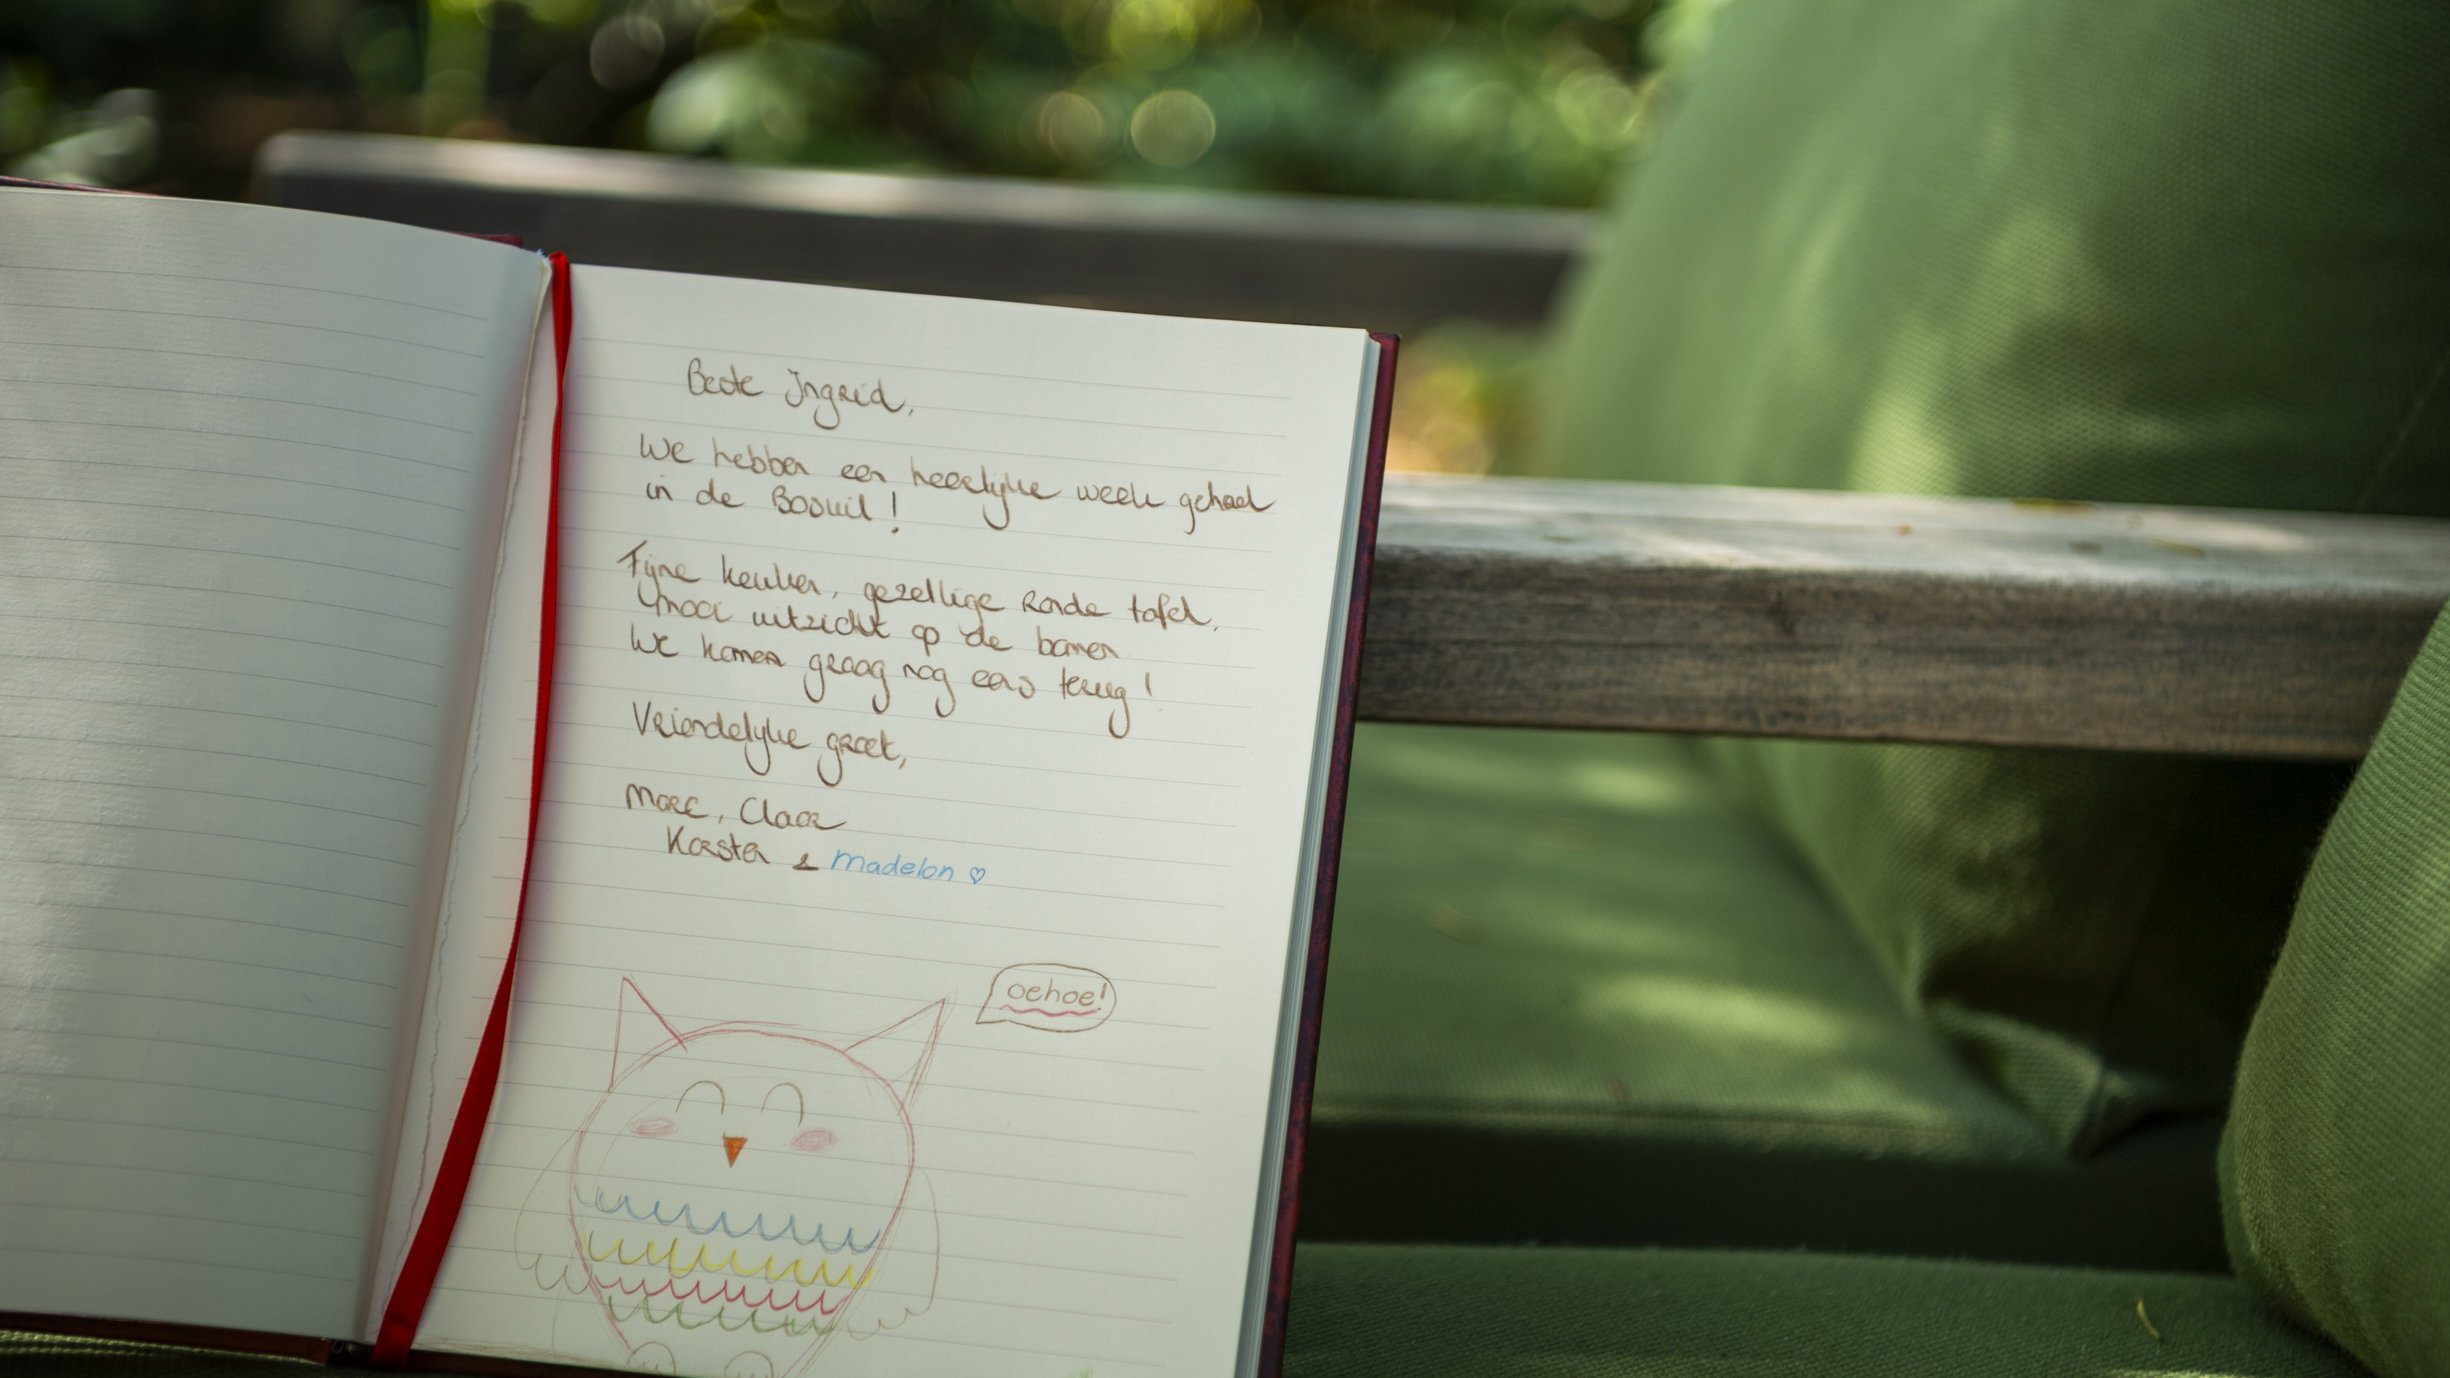 Beste Ingrid,
We hebben een heerlijke week gehad
in de Bosuil!
Fijne keuken, gezellige ronde tafel,
mooi uitzicht op de bomen
We komen graag nog eens terug!
Vriendelijke groet,
Marc, Claar
Karsten & Madelon ♡
oehoe!